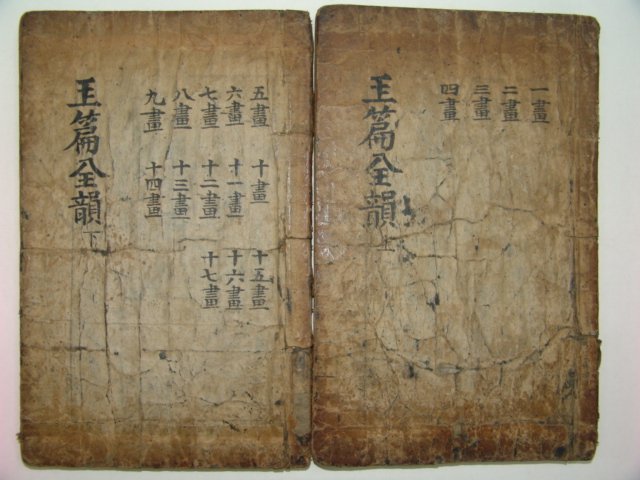 一畫
二畫
三畫
四畫
王篇全韻 上
五畫
六畫
七畫
八畫
九畫
十畫
十一畫
十二畫
十三畫
十四畫
十五畫
十六畫
十七畫
王篇全韻 下